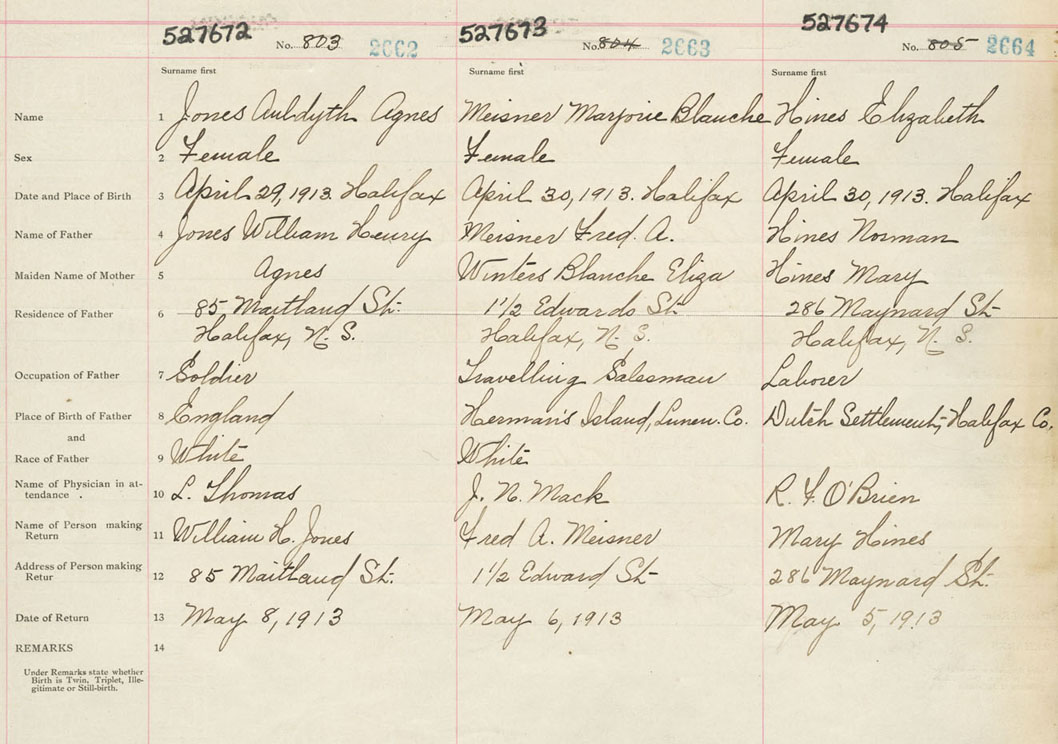 527672 527673 527674
No. 803 2662 No. 804 2663 No. 805 2664
Surname first Surname first Surname first
Name 1 Jones Auldyth Agnes Meisner Marjorie Blanche Hines Elizabeth
Sex 2 Female Female Female
Date and Place of Birth 3 April 29, 1913. Halifax April 30, 1913. Halifax April 30, 1913. Halifax
Name of Father 4 Jones William Henry Meisner Fred. A. Hines Norman
Maiden Name of Mother 5 Agnes Winters Blanche Eliza Hines Mary
Residence of Father 6 85 Maitland St. 1 1/2 Edwards St 286 Maynard St
Halifax, N. S. Halifax, N. S. Halifax, N. S.
Occupation of Father 7 Soldier Travelling Salesman Laborer
Place of Birth of Father 8 England Herman's Island, Lunen. Co. Dutch Settlement, Halifax Co.
and
Race of Father 9 White White
Name of Physician in at-
tendance . 10 L. Thomas J. N. Mack R. F. O'Brien
Name of Person making
Return 11 William H. Jones Fred A. Meisner Mary Hines
Address of Person making
Retur 12 85 Maitland St. 1 1/2 Edward St 286 Maynard St.
Date of Return 13 May 8, 1913 May 6, 1913 May 5, 1913
REMARKS 14
Under Remarks state whether
Birth is Twin, Triplet, Ille-
gitimate or Still-birth.